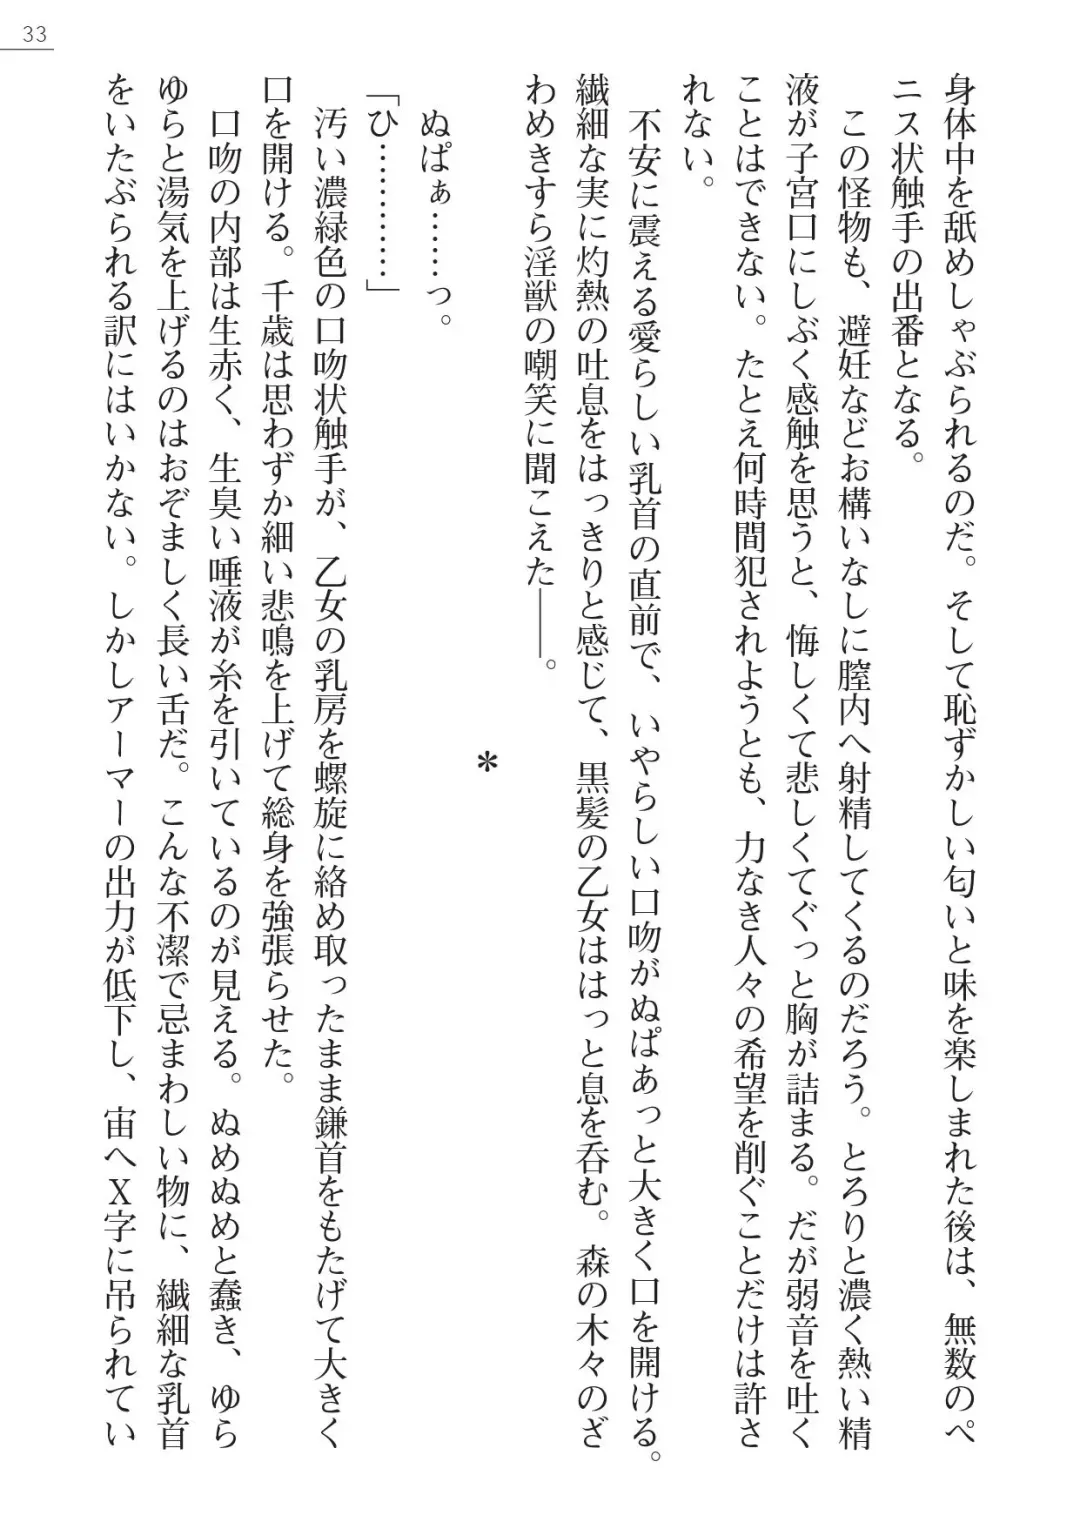 33
身体中を舐めしゃぶられるのだ。そして恥ずかしい匂いと味を楽しまれた後は、無数のペ
ニス状触手の出番となる。
この怪物も、避妊などお構いなしに膣内へ射精してくるのだろう。とろりと濃く熱い精
液が子宮口にしぶく感触を思うと、悔しくて悲しくてぐっと胸が詰まる。だが弱音を吐く
ことはできない。たとえ何時間犯されようとも、力なき人々の希望を削ぐことだけは許さ
れない。
不安に震える愛らしい乳首の直前で、いやらしい口吻がぬぱあっと大きく口を開ける。
繊細な実に灼熱の吐息をはっきりと感じて、黒髪の乙女ははっと息を呑む。森の木々のざ
わめきすら淫獣の嘲笑に聞こえた――。
＊
ぬぱぁ……っ。
「ひ…………」
汚い濃緑色の口吻状触手が、乙女の乳房を螺旋に絡め取ったまま鎌首をもたげて大きく
口を開ける。千歳は思わずか細い悲鳴を上げて総身を強張らせた。
口吻の内部は生赤く、生臭い唾液が糸を引いているのが見える。ぬめぬめと蠢き、ゆら
ゆらと湯気を上げるのはおぞましく長い舌だ。こんな不潔で忌まわしい物に、繊細な乳首
をいたぶられる訳にはいかない。しかしアーマーの出力が低下し、宙へＸ字に吊られてい